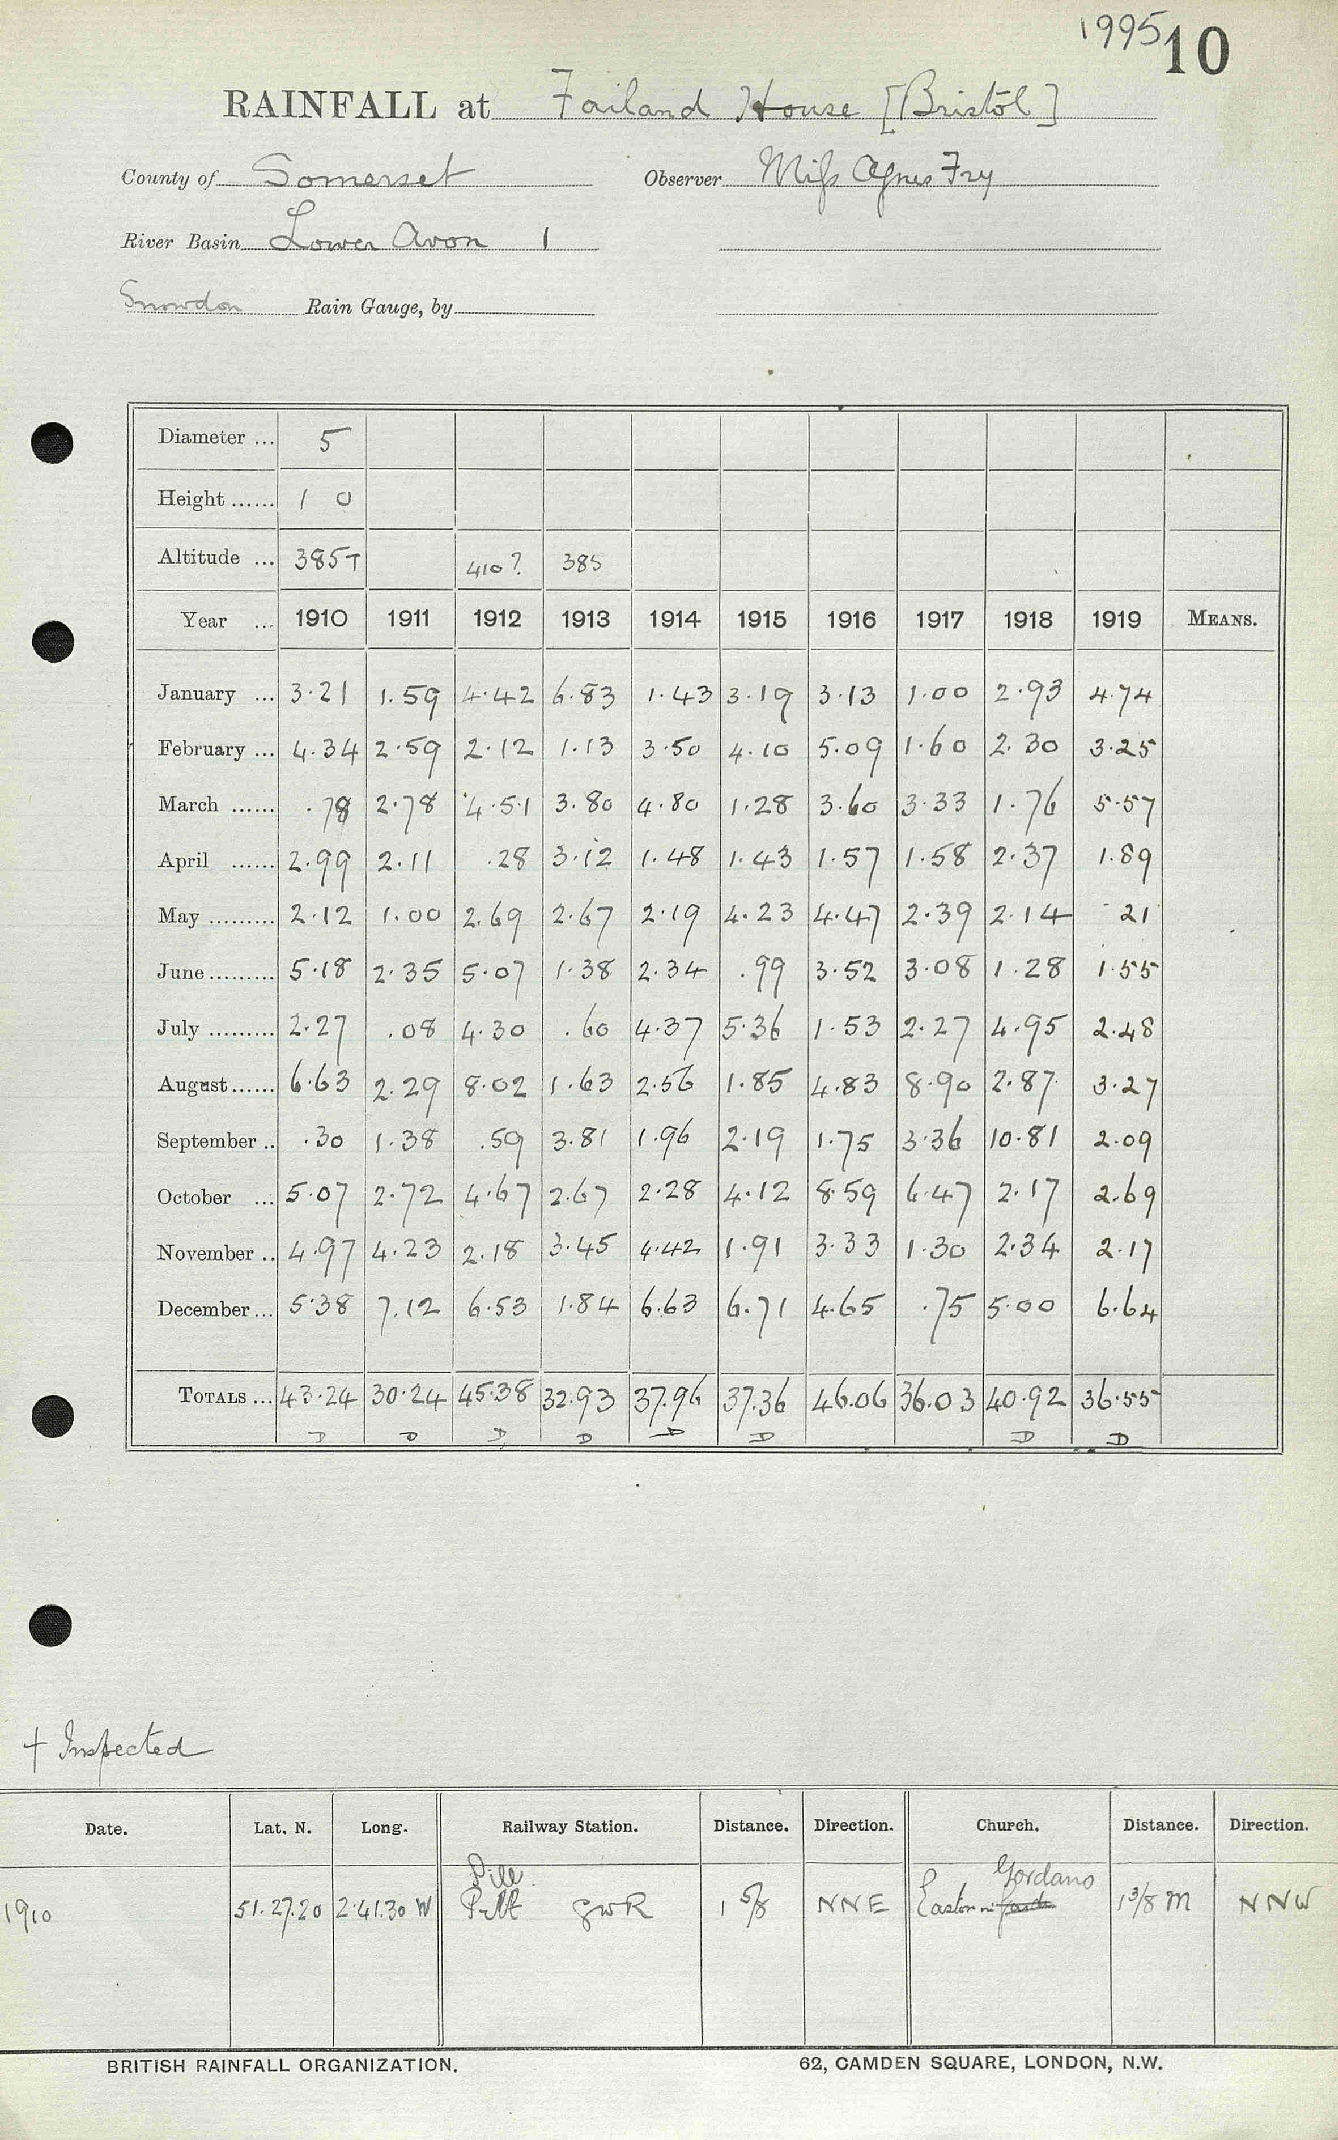 1995 10
RAINFALL at Failand House [Bristol]
County of Somerset Observer Miss Agnes Fry
River Basin Lower Avon 1
Snowdon Rain Gauge, by
Diameter ... 5
Height ...... 1 0
Altitude ... 385T 410? 385
Year ... 1910 1911 1912 1913 1914 1915 1916 1917 1918 1919 MEANS.
January ... 3.21 1.59 4.42 6.83 1.43 3.19 3.13 1.00 2.93 4.74
February ... 4.34 2.59 2.12 1.13 3.50 4.10 5.09 1.60 2.30 3.25
March ...... .78 2.78 4.51 3.80 4.80 1.28 3.60 3.33 1.76 5.57
April ...... 2.99 2.11 .28 3.12 1.48 1.43 1.57 1.58 2.37 1.89
May ......... 2.12 1.00 2.69 2.67 2.19 4.23 4.47 2.39 2.14 .21
June ......... 5.18 2.35 5.07 1.38 2.34 .99 3.52 3.08 1.28 1.55
July ......... 2.27 .08 4.30 .60 4.37 5.36 1.53 2.27 4.95 2.48
August ...... 6.63 2.29 8.02 1.63 2.56 1.85 4.83 8.90 2.87 3.27
September .. .30 1.38 .59 3.81 1.96 2.19 1.75 3.36 10.81 2.09
October ... 5.07 2.72 4.67 2.67 2.28 4.12 8.59 6.47 2.17 2.69
November .. 4.97 4.23 2.18 3.45 4.42 1.91 3.33 1.30 2.34 2.17
December ... 5.38 7.12 6.53 1.84 6.63 6.71 4.65 .75 5.00 6.64
TOTALS ... 43.24 30.24 45.38 32.93 37.96 37.36 46.06 36.03 40.92 36.55
D D D D D D D D
† Inspected
Date. Lat. N. Long. Railway Station. Distance. Direction. Church. Distance. Direction.
Pill Gordano
1910 51.27.20 2.41.30 W GWR 1 5/8 NNE Easton in 1 3/8 m NNW
BRITISH RAINFALL ORGANIZATION. 62, CAMDEN SQUARE, LONDON, N.W.